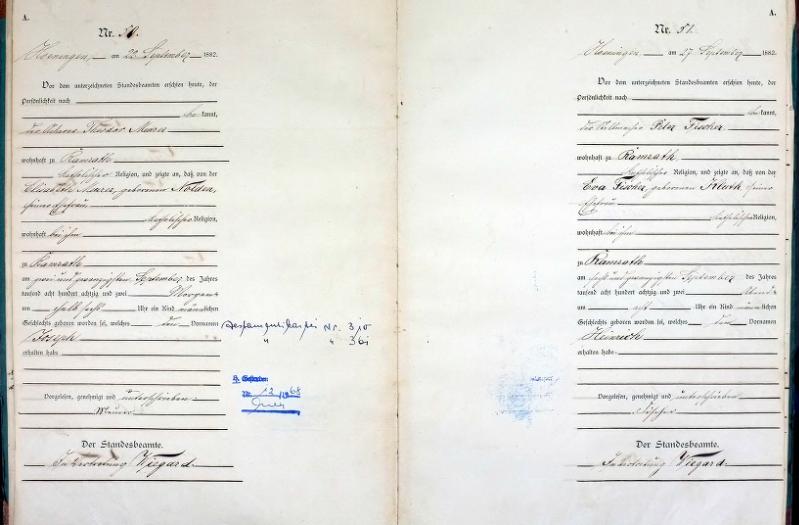 A.
Nr. 50.
Hoeningen, am 22. September 1882.
Vor dem unterzeichneten Standesbeamten erschien heute, der
Persönlichkeit nach
be kannt,
der Ackerer Theodor Maurer
wohnhaft zu Ramrath
katholischer Religion, und zeigte an, daß von der
Elisabeth Maurer, geborenen Nolden,
seiner Ehefrau
katholischer Religion,
wohnhaft bei ihm
zu Ramrath
am zwei und zwanzigsten September des Jahres
tausend acht hundert achtzig und zwei Morgens
um halb sechs Uhr ein Kind männlichen
Geschlechts geboren worden sei, welches den Vornamen
Joseph
erhalten habe
Vorgelesen, genehmigt und unterschrieben
Maurer
Der Standesbeamte.
In Vertretung Wiegard
Testamentskartei Nr. 310
" " 361
A.
Nr. 51.
Hoeningen am 27. September 1882.
Vor dem unterzeichneten Standesbeamten erschien heute, der
Persönlichkeit nach
be kannt,
der Peter Fischer
wohnhaft zu Ramrath
katholischer Religion, und zeigte an, daß von der
Eva Fischer, geborenen Kluth seiner
Ehefrau
katholischer Religion,
wohnhaft bei ihm
zu Ramrath
am sechs und zwanzigsten September des Jahres
tausend acht hundert achtzig und zwei Abends
um acht Uhr ein Kind männlichen
Geschlechts geboren worden sei, welches den Vornamen
Heinrich
erhalten habe
Vorgelesen, genehmigt und unterschrieben
Fischer
Der Standesbeamte.
In Vertretung Wiegard